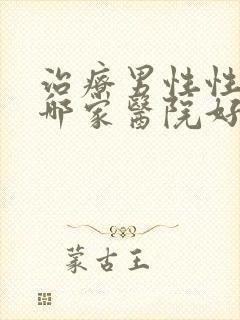 治療男性性
哪家醫院好
蒙古王